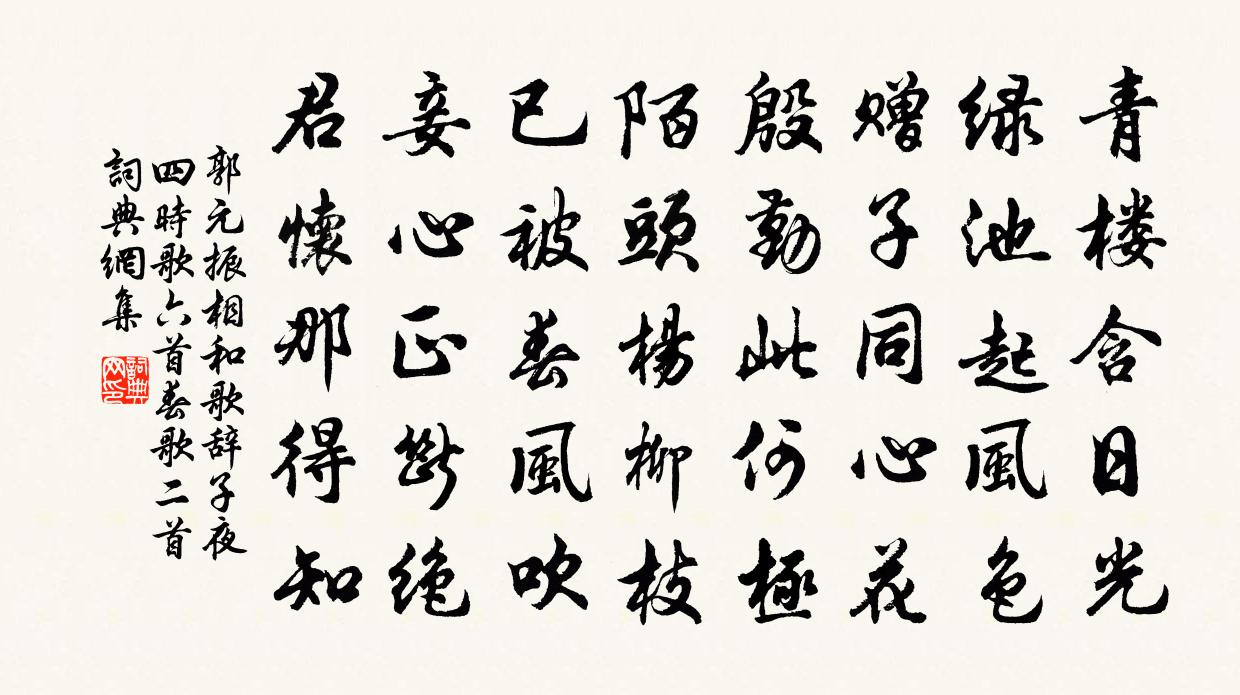 青楼含日光
緑池起風色
赠子同心花
殷勤此何極
陌頭楊柳枝
已被春風吹
妾心正斷絶
君懷那得知
郭元振相和歌辞子夜
四時歌六首春歌二首
詞典網集
詞典网印